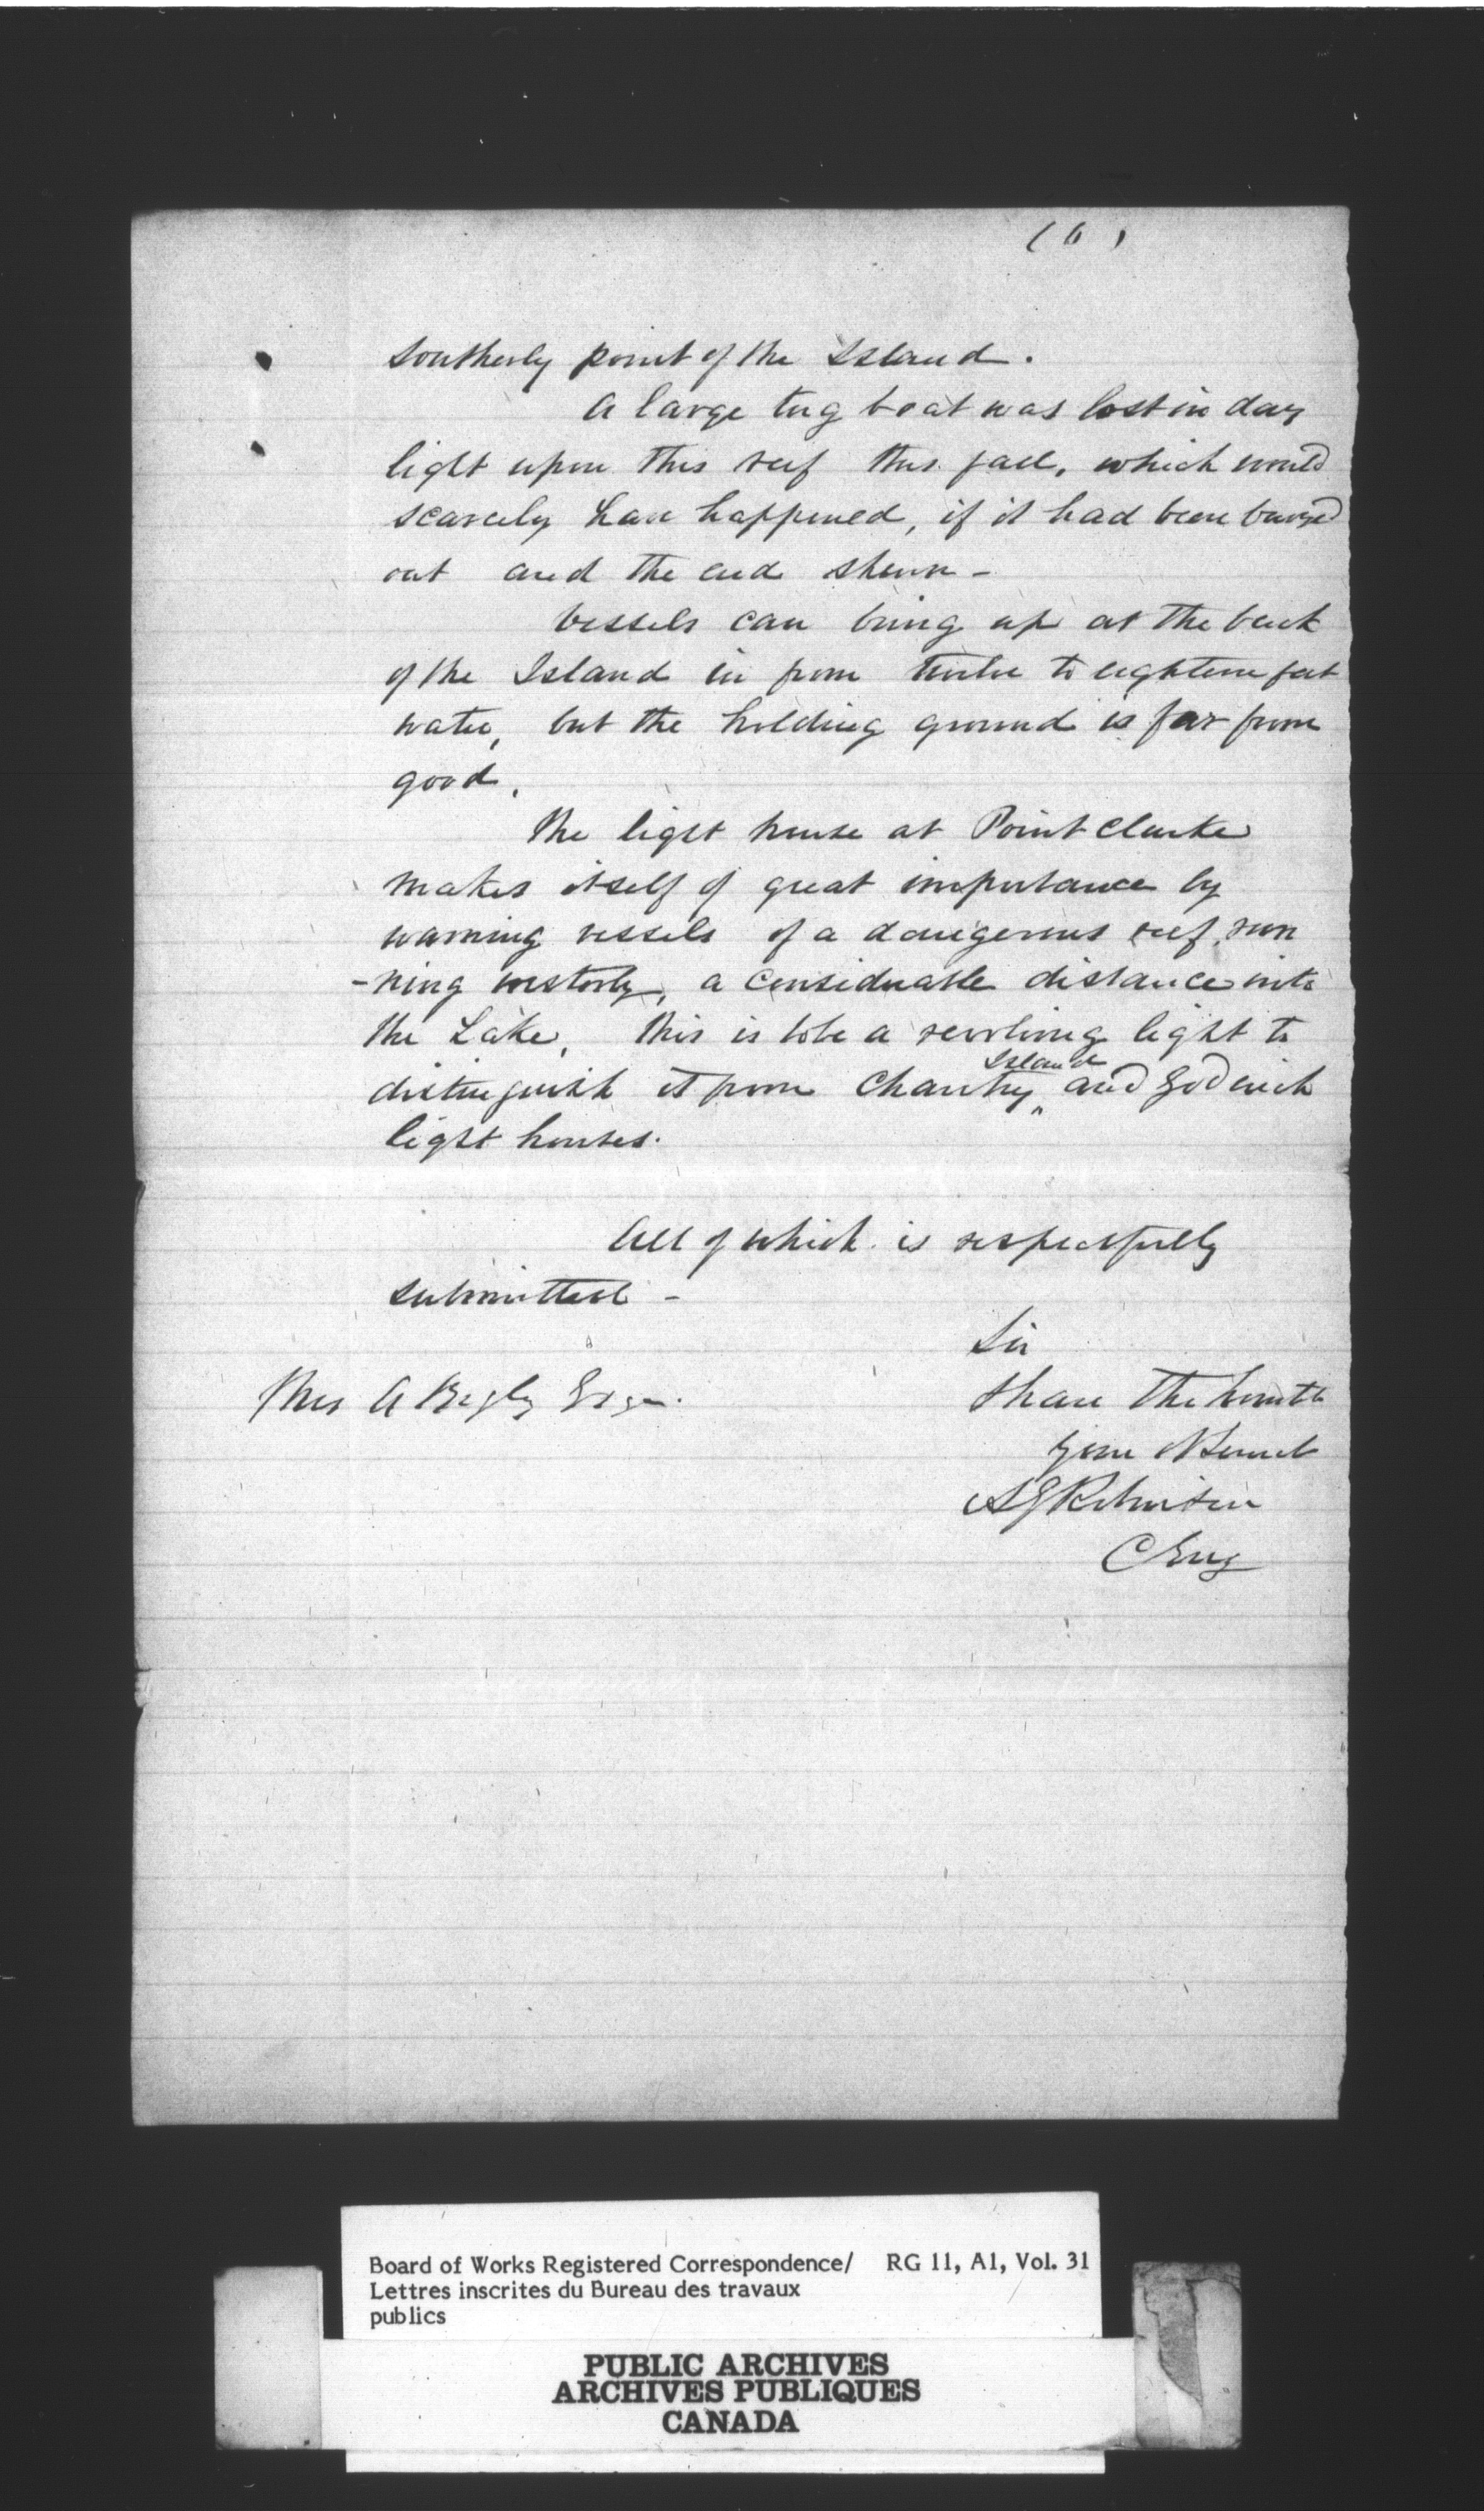 (6)
southerly point of the Island.
A large tug boat was lost in day
light upon this reef this fall, which would
scarcely have happened, if it had been buoyed
out and the end shewn -
Vessels can bring up at the back
of the Island in from twelve to eighteen feet
water, but the holding ground is far from
good.
The light house at Point Clarke
makes itself of great importance by
warning vessels of a dangerous reef, run
-ning westerly, a considerable distance into
the Lake, this is to be a revolving light to
Island
distinguish it from Chantry " and Goderich
light houses.
All of which is respectfully
submitted -
Sir
Thos A Begly Esqr.
I have the honor to
Your Obt
A G Robinson
C Eng
Board of Works Registered Correspondence/ RG 11, A1, Vol. 31
Lettres inscrites du Bureau des travaux
publics
PUBLIC ARCHIVES
ARCHIVES PUBLIQUES
CANADA